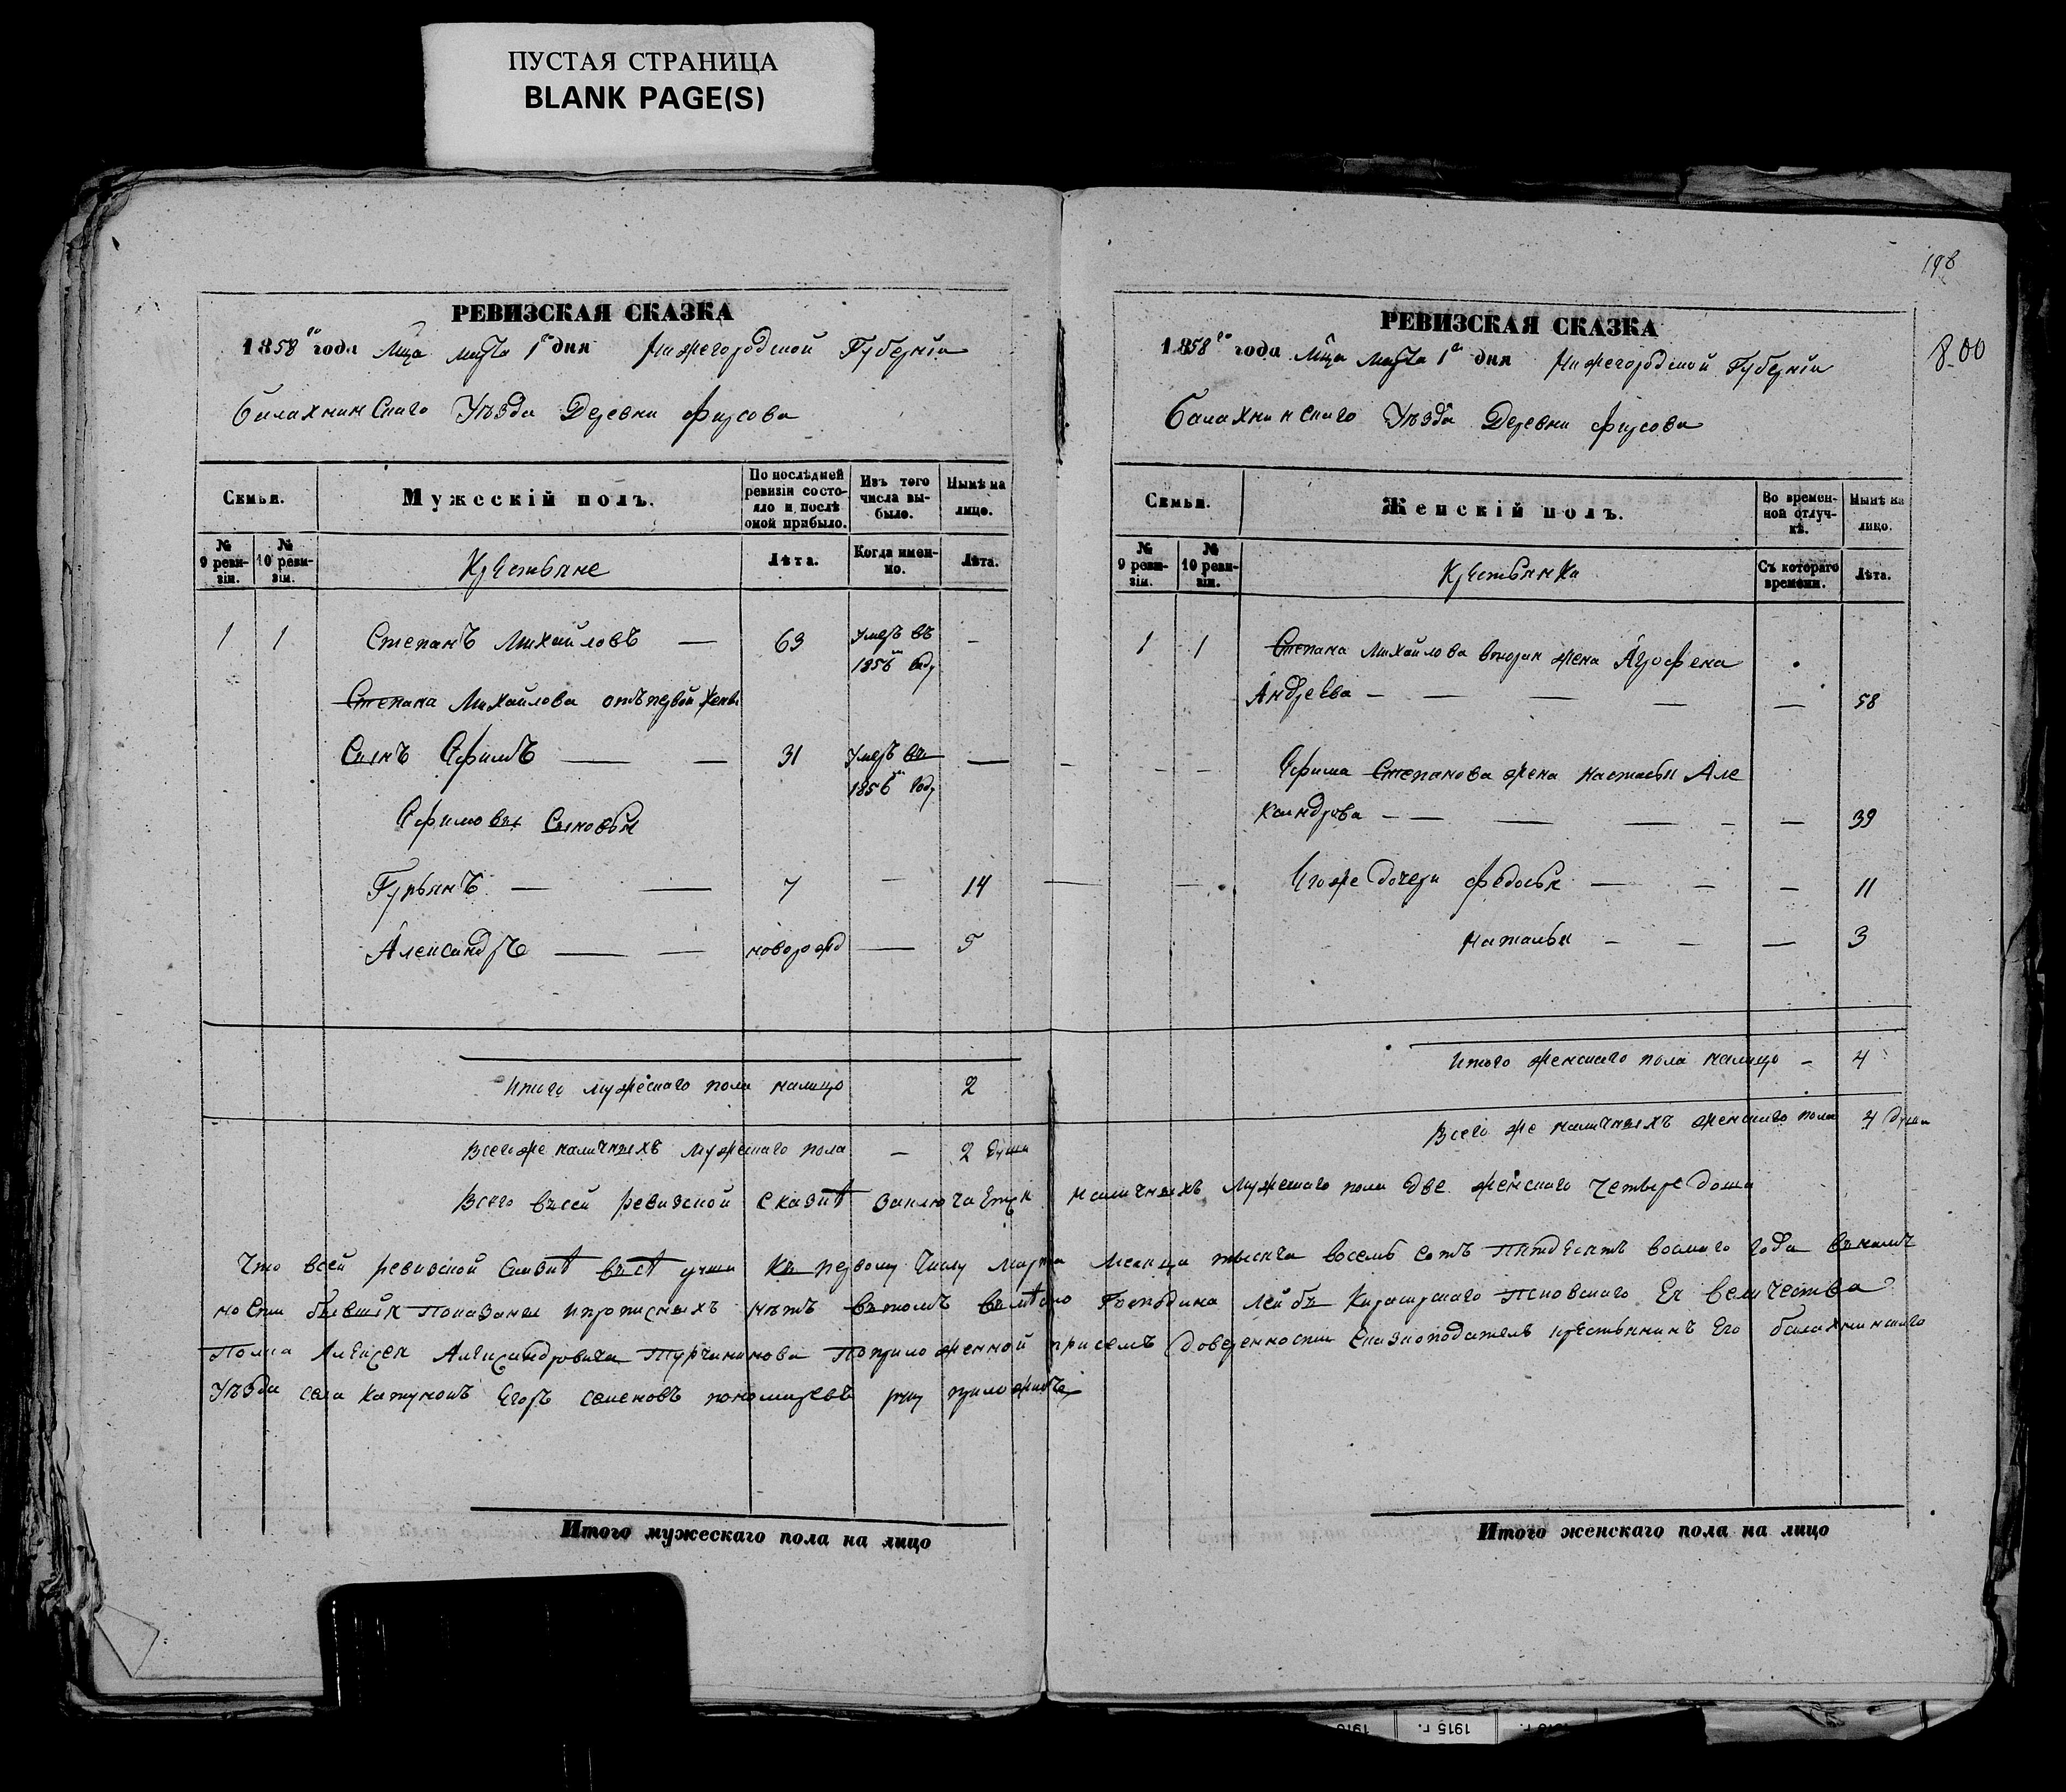 ПУСТАЯ СТРАНИЦА
BLANK PAGE(S)
РЕВИЗСКАЯ СКАЗКА
1858го года Мца марта 1го дня Нижегородской Губернiи
Балахнинскаго Уѣзда Деревни Фирсова
Семьи.
Мужескiй полъ.
По послѣдней ревизiи состояло и послѣ оной прибыло.
Изъ того числа выбыло.
Нынѣ на лицо.
№ 9 ревизiи.
№ 10 ревизiи.
Крестьяне
Лѣта.
Когда именно.
Лѣта.
1 1 Степанъ Михайловъ — 63 умеръ въ —
1856м году
Степана Михайлова отъ первой жены
Сынъ Ефимъ — — 31 умеръ въ —
1856м году
Ефимовы Сыновья
Гурьянъ — — 7 — 14
Александръ — — новорожд — 5
Итого мужескаго пола налицо 2
Всего же наличныхъ мужескаго пола — 2 души
РЕВИЗСКАЯ СКАЗКА
198
1858го года Мца марта 1го дня Нижегородской Губернiи
8.00
Балахнинскаго Уѣзда Деревни Фирсова
Семьи.
Женскiй полъ.
Во временной отлучкѣ.
Нынѣ на лицо.
№ 9 ревизiи.
№ 10 ревизiи.
Крестьянка
Съ котораго времени.
Лѣта.
1 1 Степана Михайлова вторая жена Агрофена
Андреева — — — — — 58
Ефима Степанова жена Настасья Але
ксандрова — — — — — — 39
Егоже дочери Федосья — — — 11
Наталья — — — 3
Итого женскаго пола налицо — 4
Всего же наличныхъ женскаго пола 4 души
Всего въсей ревизской сказкѣ заключается наличныхъ мужескаго пола две женскаго четыре души
Что всей ревизской сказкѣ всѣ души къ первому числу марта месяца тысяча восемь сотъ пятдесятъ восмаго года въналич
ности бывшiя показаны ипрописныхъ нѣтъ вътомъ вместо Господина лейбъ Кирасирскаго Псковскаго Ея величества
Полка Алексея Александровича Турчанинова Поприложенной присемъ доверенности сказкоподатель крестьянинъ его балахнинскаго
Уѣзда села Катунокъ Егоръ Семеновъ пономаревъ руку приложилъ
Итого мужескаго пола на лицо
Итого женскаго пола на лицо
1915 г.